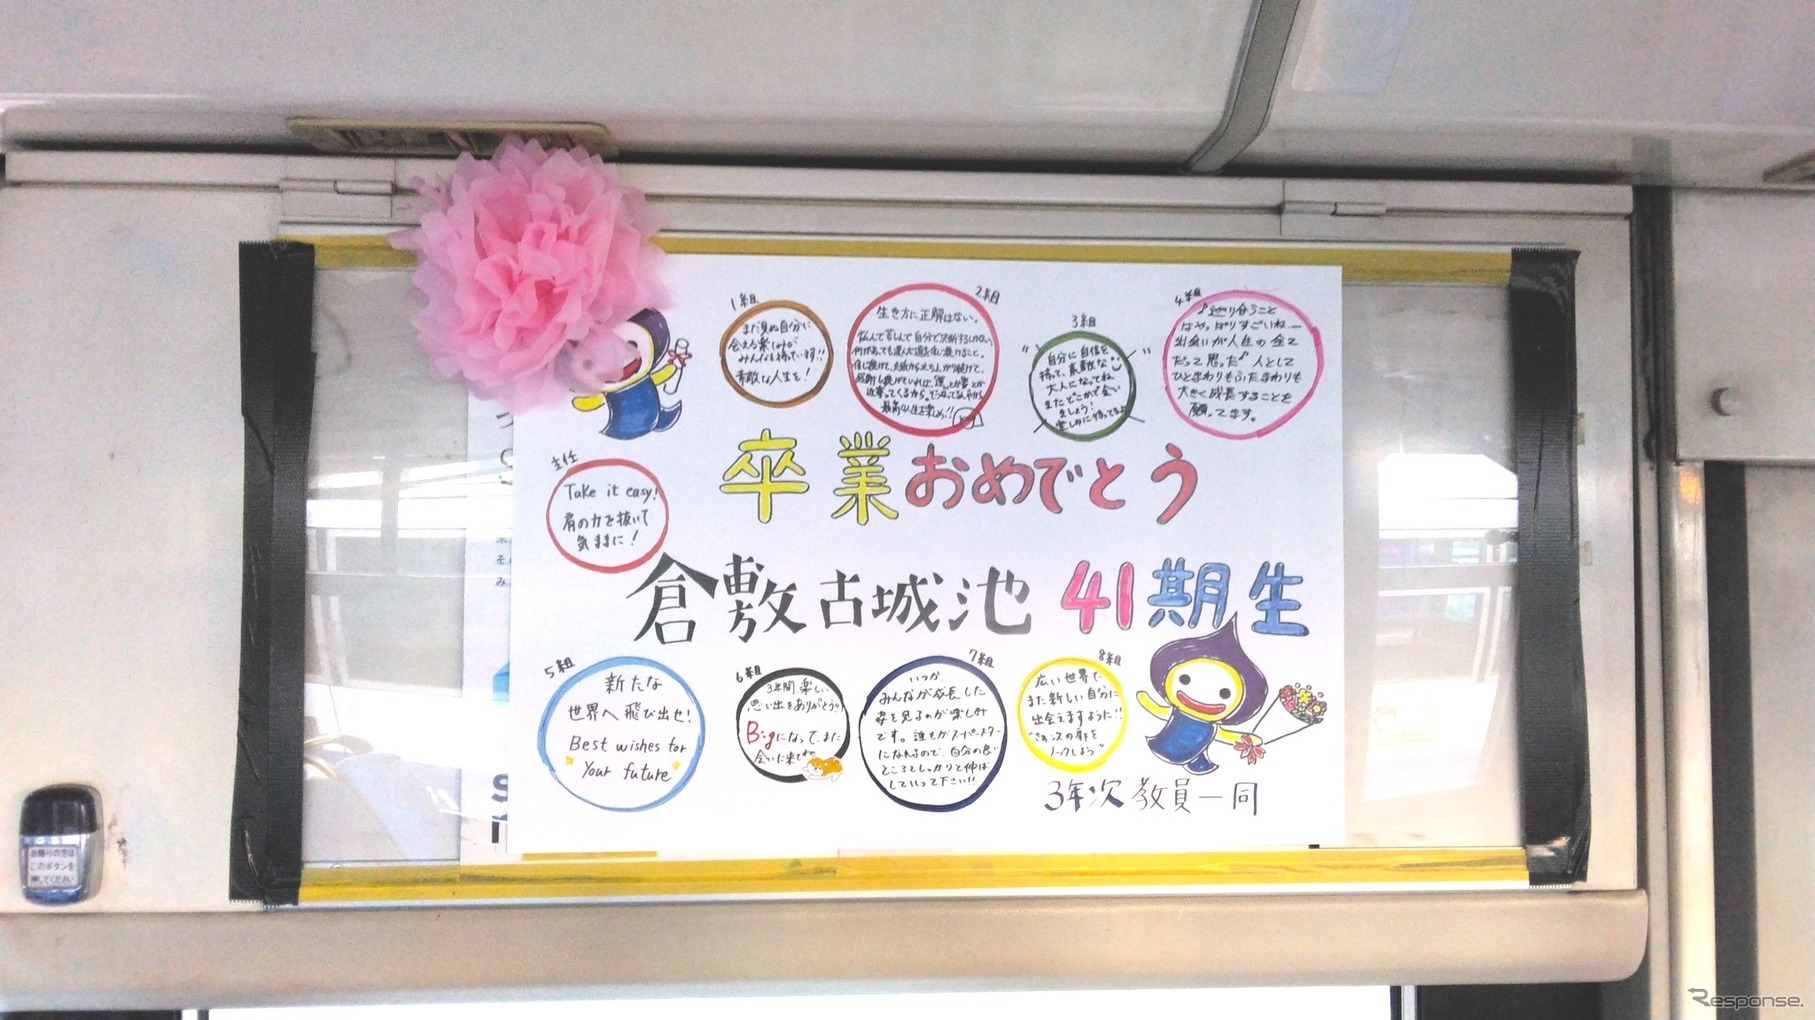 1組
まだ見ぬ自分に
会える楽しみが
みんなを待っています!!
素敵な人生を!
2組
生き方に正解はない。
悩んで苦しんで自分で決断するしかない。
何があっても選んだ道を
信じ続けて、失敗から立ち上がり続けて、
感謝し続けていれば、
最高の人生を
3組
自分に自信を
持って、素敵な
大人になってね
またどこかで会い
ましょう!
楽しみに待ってるよ
4組
♪巡り合うこと
はやっぱりすごいね
出会いが人生の全て
だって思った♪ 人として
ひとまわりもふたまわりも
大きく成長することを
願ってます。
卒業おめでとう
主任
Take it easy!
肩の力を抜いて
気ままに!
倉敷古城池 41期生
5組
新たな
世界へ飛び出せ!
Best wishes for
Your future
6組
3年間楽しい
思い出をありがとう!!
Bigになって、また
会いに来てね
7組
いつか、
みんなが成長した
姿を見るのが楽しみ
です。誰もがスーパースター
になれるので、自分の良い
ところをしっかりと伸ば
していって下さい!!
8組
広い世界で
また新しい自分に
出会えますように!!
"さぁ次の扉を
ノックしよう"
3年次教員一同
お降りの方は
このボタンを
押してください
Response.